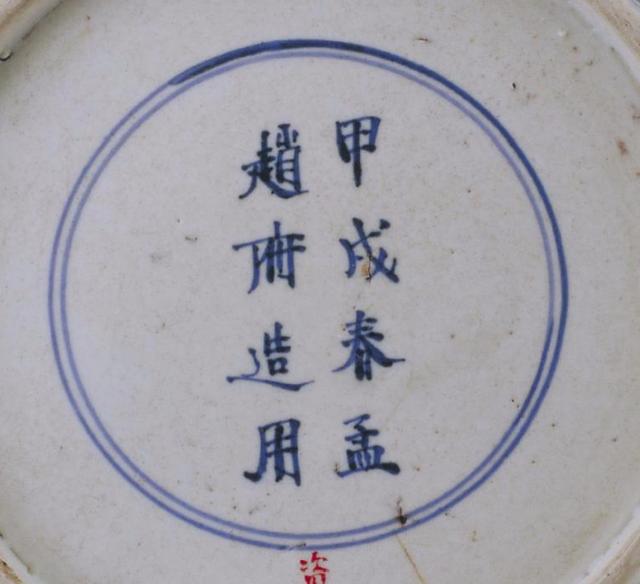 甲戌春孟
趙府造用